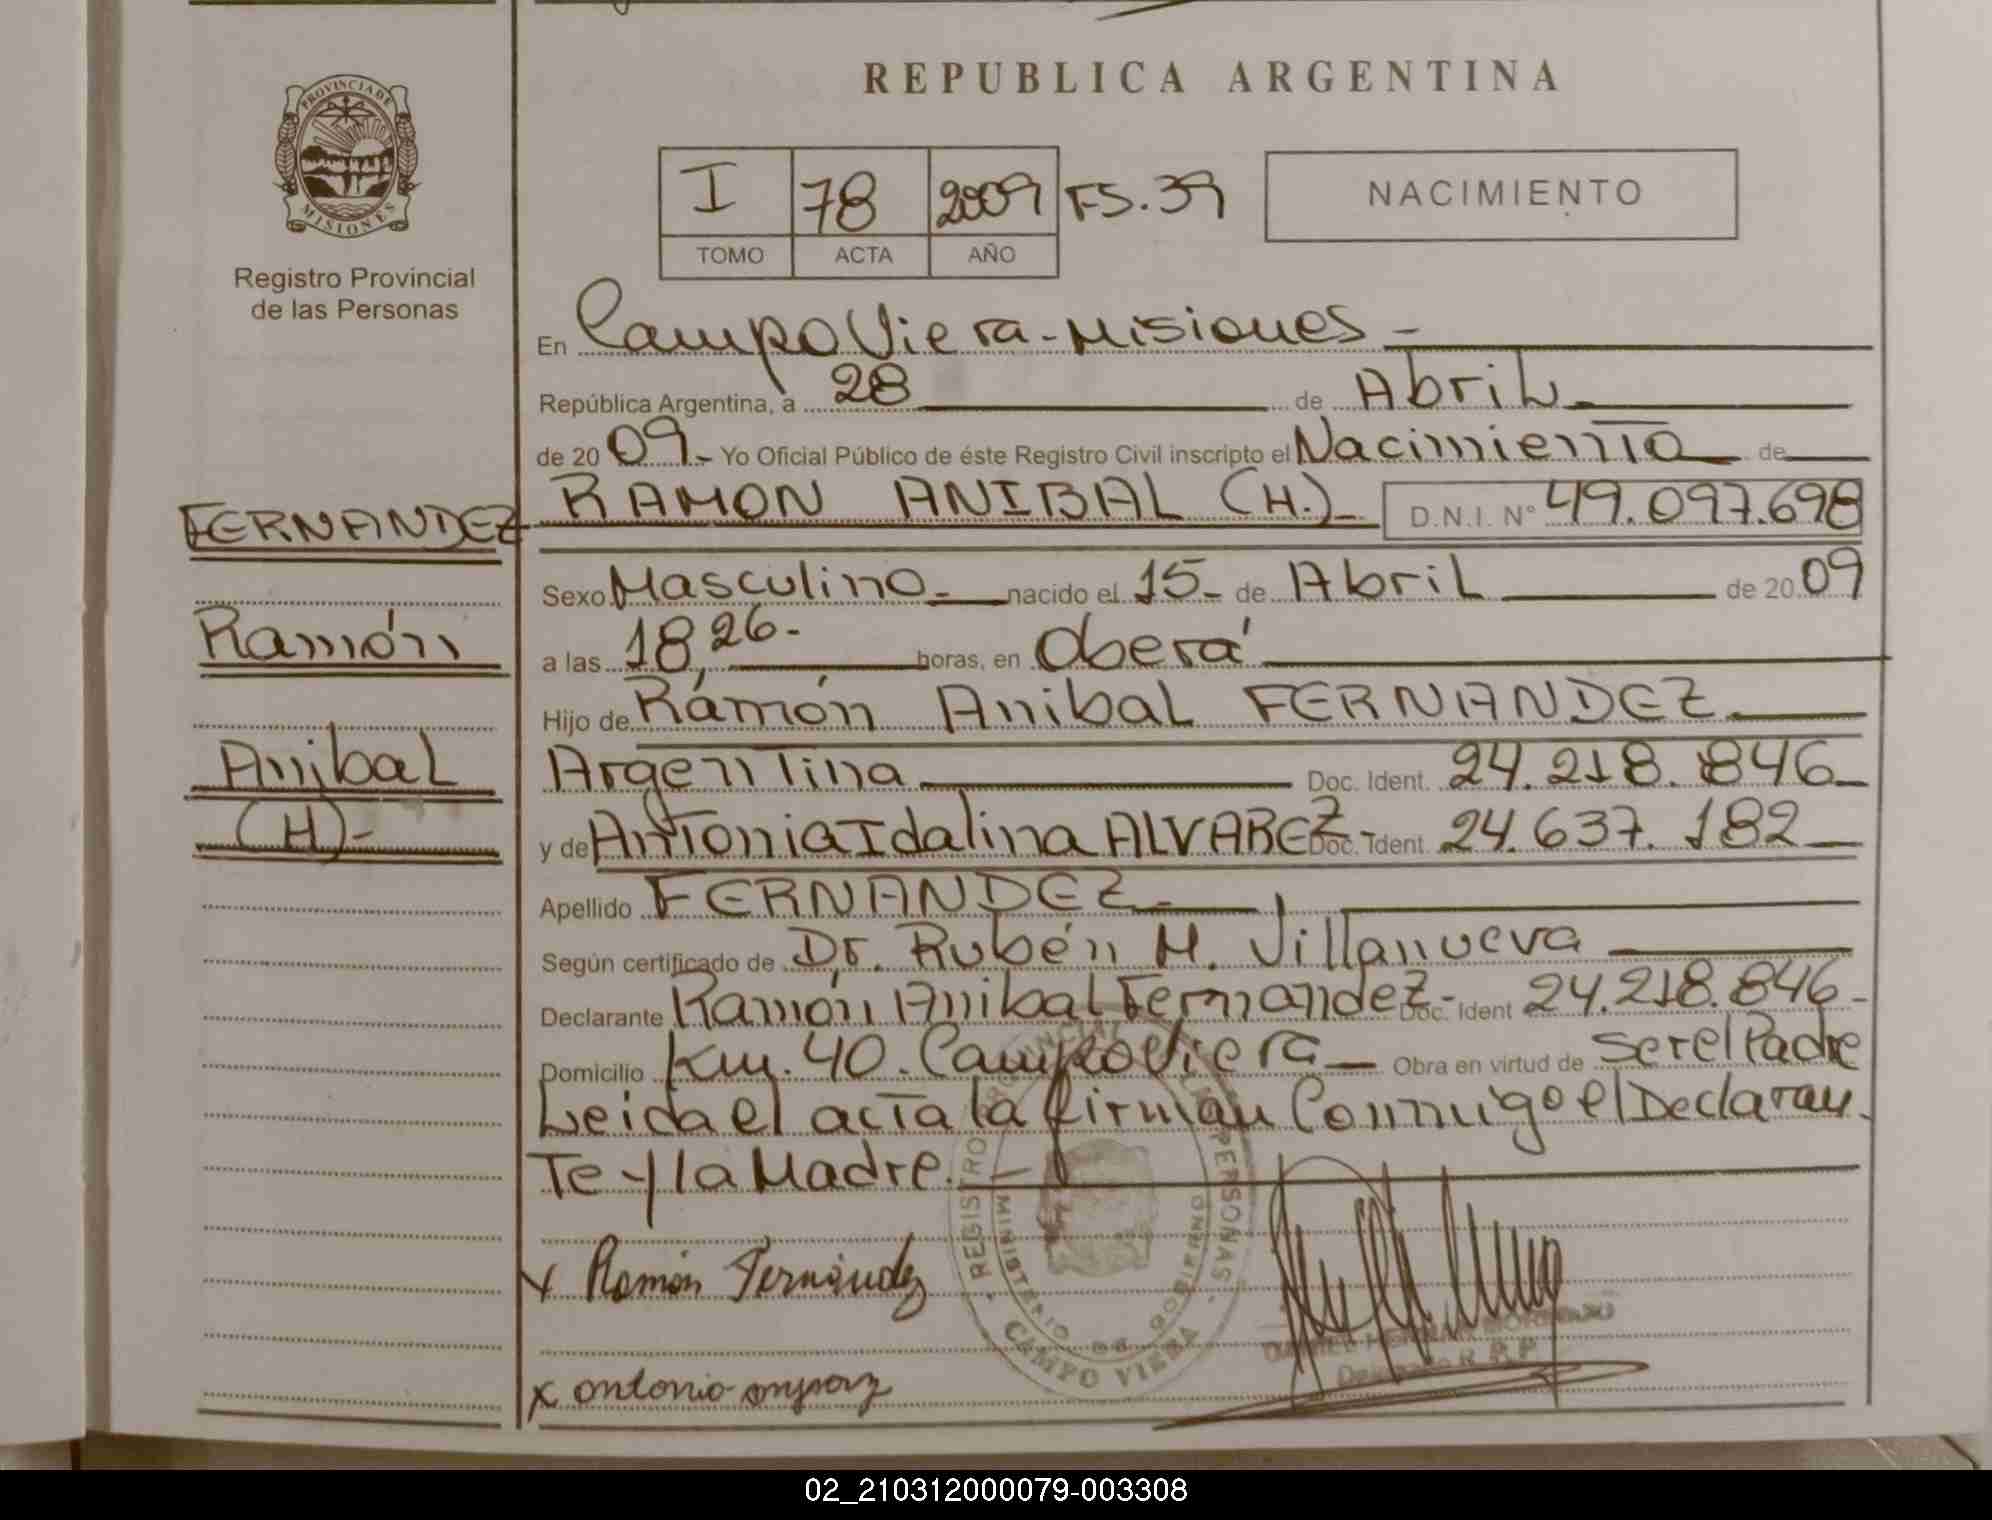 REPUBLICA ARGENTINA
PROVINCIA DE
MISIONES
Registro Provincial
de las Personas
I 78 2009 FS.39
TOMO ACTA AÑO
NACIMIENTO
En Campo Viera-Misiones-
República Argentina, a 28 de Abril
de 2009- Yo Oficial Público de éste Registro Civil inscripto el Nacimiento de
FERNANDEZ RAMON ANIBAL (H.)- D.N.I. N° 49.097.698
Sexo Masculino- nacido el 15- de Abril de 2009
Ramón
a las 18,26- horas, en Oberá
Hijo de Ramón Anibal FERNANDEZ
Anibal
Argentina Doc. Ident. 24.218.846-
(H)-
y de Antonia Idalina ALVAREZ- Doc. Ident 24.637.182
Apellido FERNANDEZ-
Según certificado de Dr. Rubén M. Villanueva
Declarante Ramón Anibal Fernández- Doc. Ident 24.218.846-
Domicilio Km. 40. Campo Viera Obra en virtud de ser el Padre
Leida el acta la firman Conmigo el Declaran
Te y la Madre.
REGISTRO PROVINCIAL DE LAS PERSONAS
MINISTERIO DE GOBIERNO
CAMPO VIERA
x Ramón Fernández
R.P.P.
x antonio
02_210312000079-003308